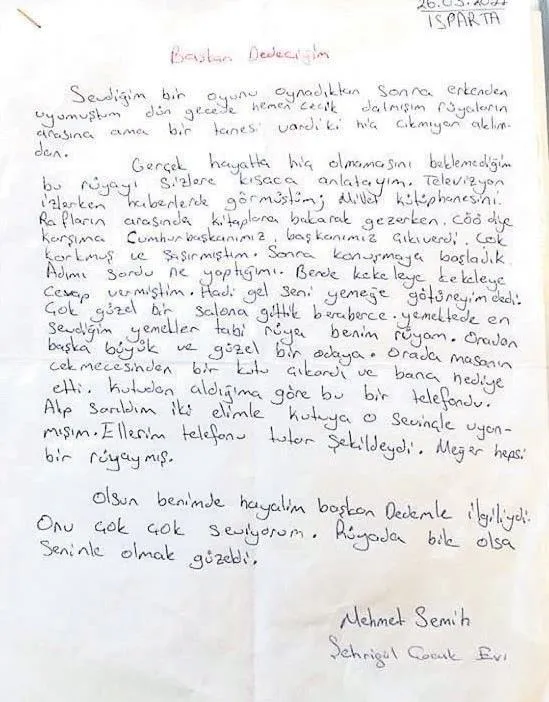 26.03.20
ISPARTA
Başkan Dedeciğim
Sevdiğim bir oyunu oynadıktan sonra erkenden
uyumuştum dün gecede hemen cecik dalmışım rüyaların
arasına ama bir tanesi vardıki hiç çıkmıyor aklım-
dan.
Gerçek hayatta hiç olmamasını beklemediğim
bu rüyayı sizlere kısaca anlatayım. Televizyon
izlerken haberlerde görmüştüm; Millet kütüphanesini.
Rafların arasında kitaplara bakarak gezerken. cöö diye
karşıma Cumhurbaşkanımız, başkanımız çıkıverdi. Çok
korkmuş ve şaşırmıştım. Sonra konuşmaya başladık.
Adımı sordu ne yaptığımı. Bende kekeleye kekeleye
cevap vermiştim. Hadi gel seni yemeğe götüreyim dedi.
Çok güzel bir salona gittik beraberce. yemektede en
sevdiğim yemekler tabi rüya benim rüyam. Oradan
başka büyük ve güzel bir odaya. Orada masanın
çekmecesinden bir kutu çıkardı ve bana hediye
etti. Kutudan aldığıma göre bu bir telefondu.
Alıp sarıldım iki elimle kutuya o sevinçle uyan-
mışım. Ellerim telefonu tutar şekildeydi. Meğer hepsi
bir rüyaymış.
Olsun benimde hayalim başkan Dedemle ilgiliydi.
Onu çok çok seviyorum. Rüyada bile olsa
Seninle olmak güzeldi.
Mehmet Semih
Şehrigül Çocuk Evi